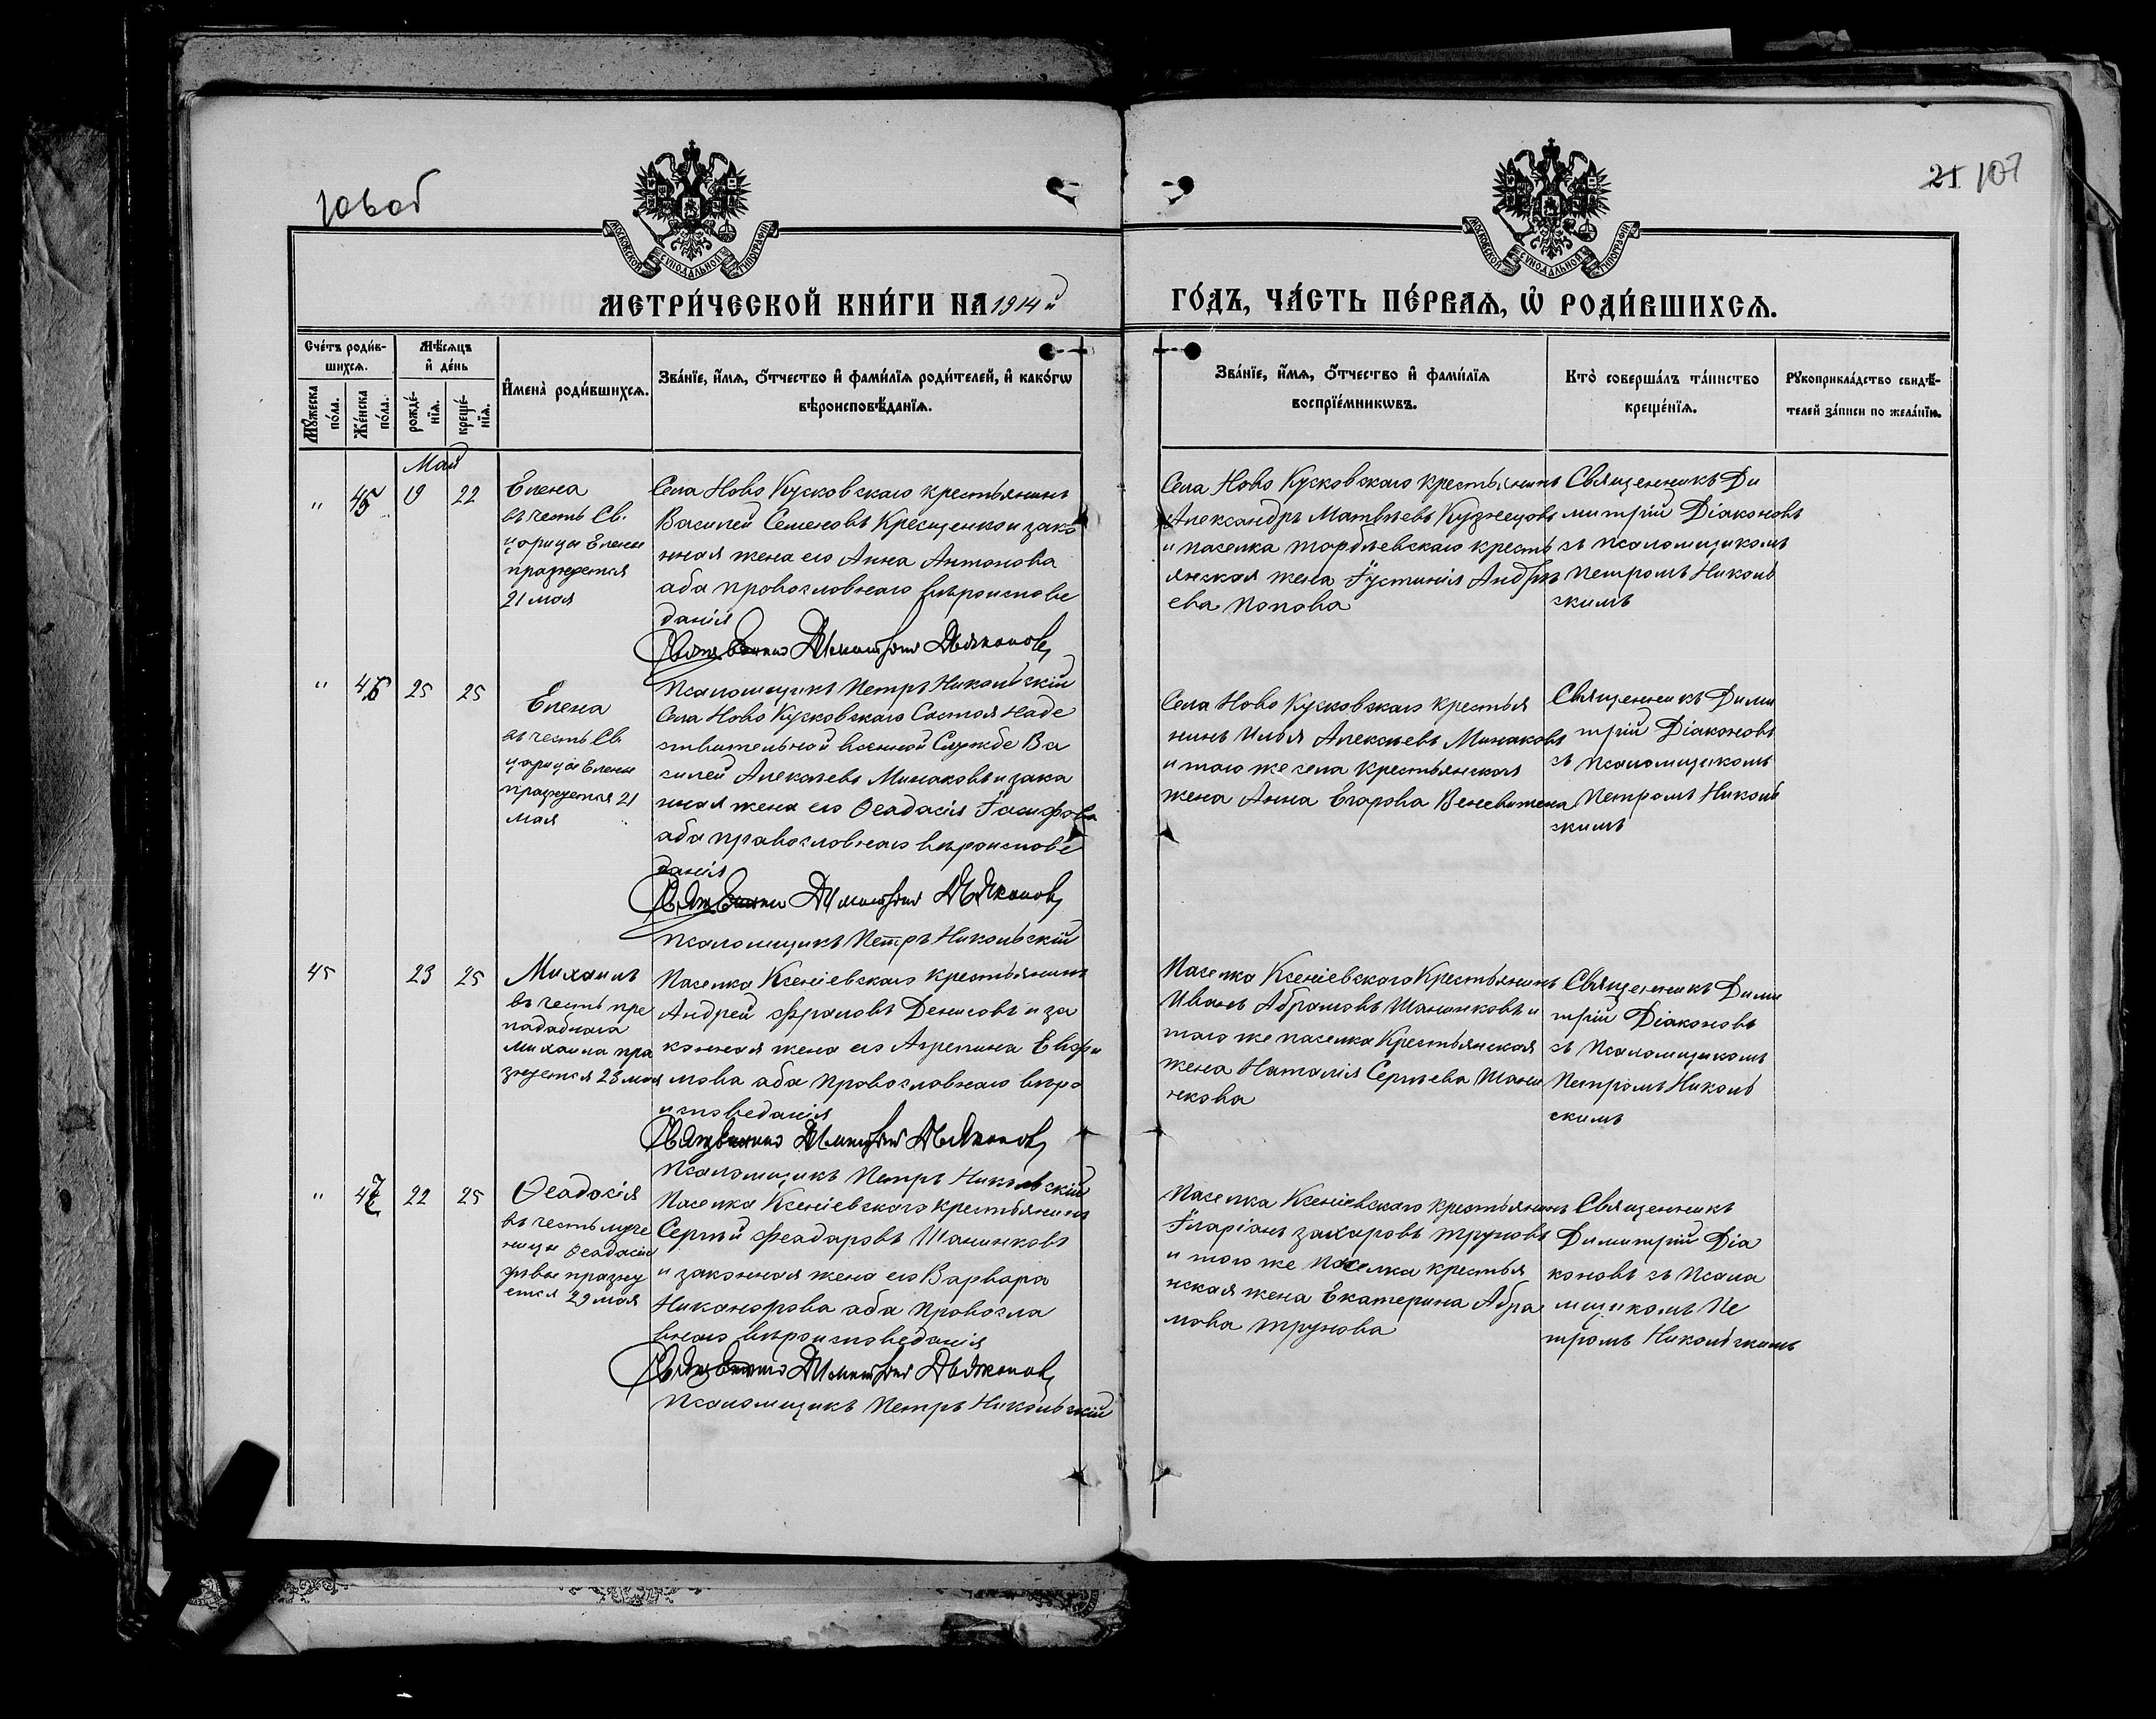 106об
21 107
МОСКОВСКОЙ СѴНОДАЛЬНОЙ ТИПОГРАФІИ
МОСКОВСКОЙ СѴНОДАЛЬНОЙ ТИПОГРАФІИ
МЕТРИ́ЧЕСКОЙ КНИ́ГИ НА 1914й
ГО́ДЪ, ЧА́СТЬ ПЕ́РВАѦ, Ѡ҆ РОДИ́ВШИХСѦ.
Сче́тъ роди́в-
шихсѧ.
Мꙋ́жеска по́ла.
Же́нска по́ла.
Мѣ́сѧцъ
и҆ де́нь
рожде́-
нїѧ.
креще́-
нїѧ.
И҆мена̀ роди́вшихсѧ.
Зва́нїе, и҆́мѧ, ѻ҆́тчество и҆ фами́лїѧ роди́телей, и҆ како́гѡ
вѣроисповѣ́данїѧ.
Зва́нїе, и҆́мѧ, ѻ҆́тчество и҆ фами́лїѧ
воспрїе́мникѡвъ.
Кто̀ соверша́лъ та́инство
креще́нїѧ.
Рꙋкоприкла́дство свидѣ́-
телей за́писи по жела́нїю.
Май
" 45 19 22
Елена
въ честь Св.
царицы Елены
празнуется
21 мая
Села Ново Кусковскаго крестьянинъ
Василей Семеновъ Крещенко и зако
нная жена его Анна Антонова
аба провословнаго вѣроиспове
данія
Священникъ Димитрій Дьяконовъ
Псаломщикъ Петръ Никольскій
Села Ново Кусковскаго крестьянинъ
Александръ Матвѣевъ Кузнецовъ
и паселка торбѣевскаго кресть
янская жена Iустинія Андрѣ
ева Попова
Священникъ Ди
митрій Діаконовъ
съ псаломщикомъ
Петромъ Николь
скимъ
" 46 25 25
Елена
въ честь Св
царицы Елены
празнуется 21
мая
Села Ново Кусковскаго Состоя наде
ствительной военной Службе Ва
силей Алексѣевъ Минаковъ и зака
нная жена его Ѳеадасія Iасифова
аба правословнаго вѣроиспове
данія
Священникъ Димитрій Дьяконовъ
Псаломщикъ Петръ Никольскій
Села Ново Кусковскаго крестья
нинъ Илья Алексѣевъ Минаковъ
и того же села крестьянская
жена Анна Егорова Веневитена
Священникъ Дими
трій Діаконовъ
съ Псаломщикомъ
Петромъ Николь
скимъ
45 23 25
Михаилъ
въ честь пре
падабнага
Михаила пра
знуется 23 мая
Паселка Ксеніевскаго крестьянинъ
Андрей Фраловъ Денисовъ и за
конная жена его Агрепина Евфи
мова аба провословнаго вѣро
исповеданія
Священникъ Димитрій Дьяконовъ
Псаломщикъ Петръ Никольскій
Паселка Ксеніевскаго Крестьянинъ
Иванъ Абрамовъ Шанинковъ и
того же паселка Крестьянская
жена Наталія Сергѣева Шани
нкова
Священникъ Дими
трій Діаконовъ
съ Псаломщикомъ
Петромъ Николь
скимъ
" 47 22 25
Ѳеадосія
въ честь муче
ницы Ѳеадасіи
дѣвы празну
ется 29 мая
Паселка Ксеніевскаго крестьянинъ
Сергѣй Феадаровъ Шанинковъ
и законная жена его Варвара
Никанорова аба Провосла
внаго вѣроисповеданія
Священникъ Димитрій Дьяконовъ
Псаломщикъ Петръ Никольскій
Паселка Ксеніевскаго крестьянинъ
Iларіанъ захаровъ труновъ
и того же Паселка крестья
нская жена Екатерина Абра
мова трунова
Священникъ
Димитрій Діа
коновъ съ Псала
мщикомъ Пе
тромъ Никольскимъ